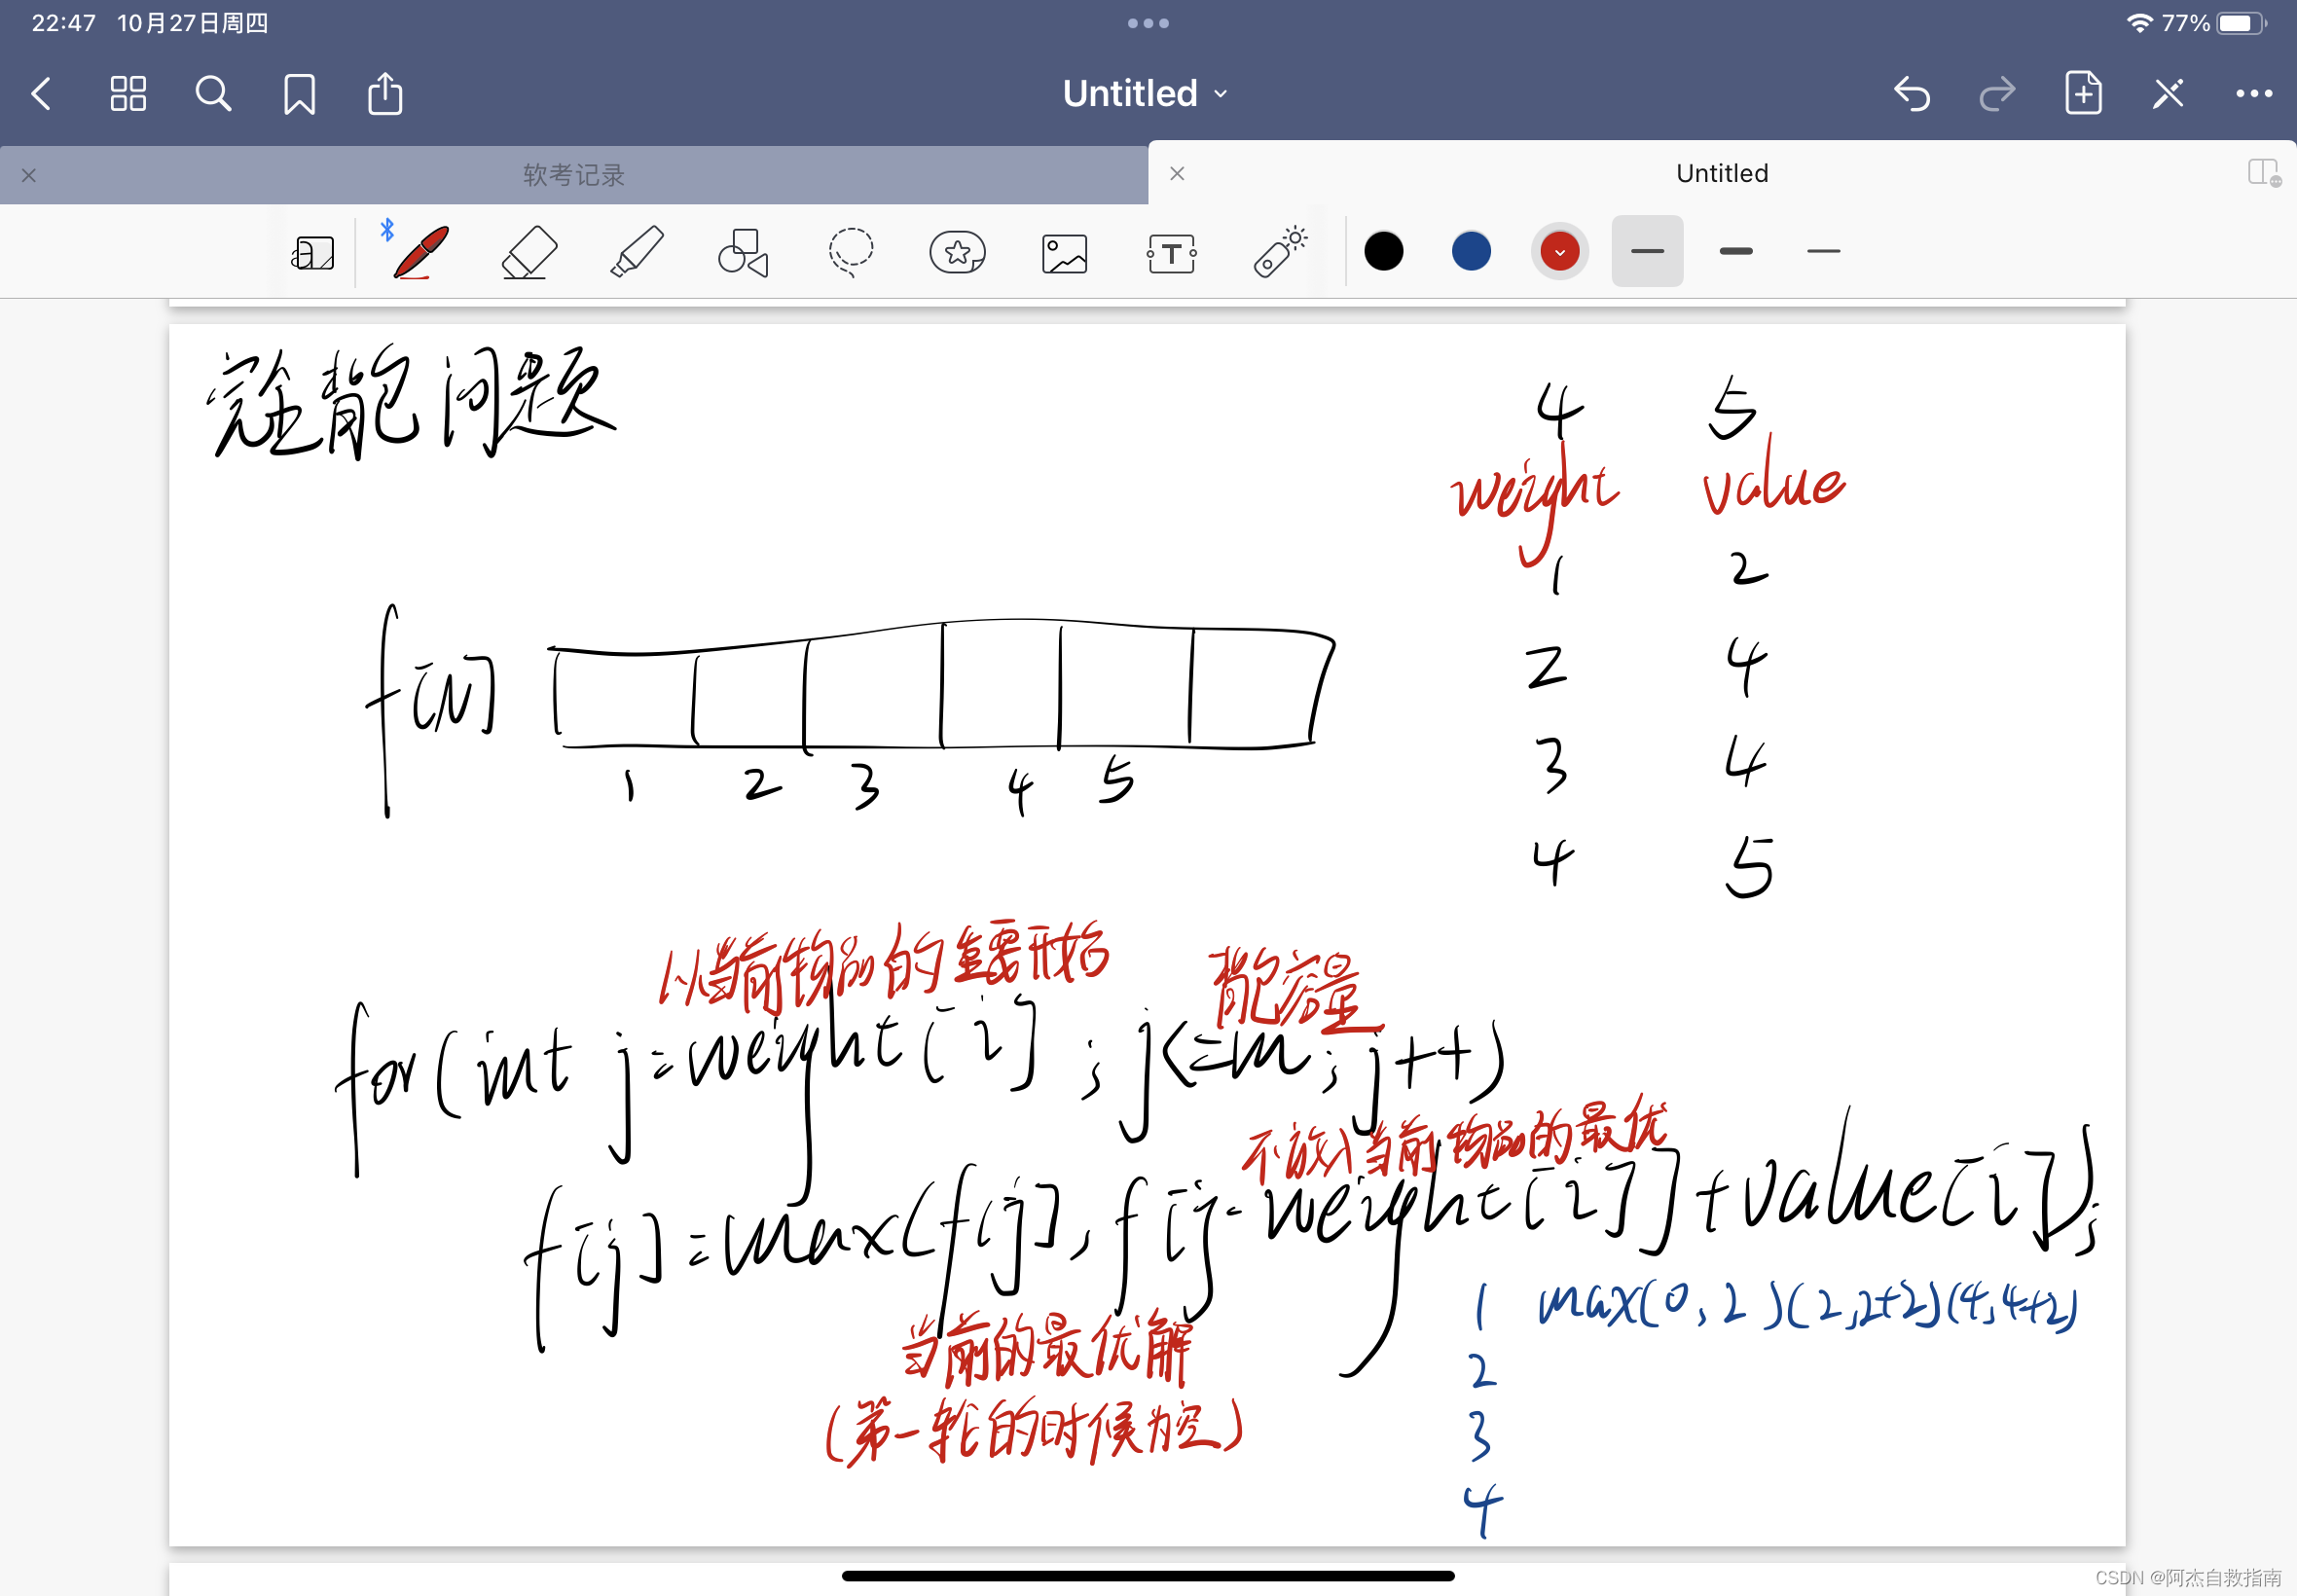 22:47 10月27日周四
77%
Untitled
软考记录
Untitled
完全背包问题
4 5
weight value
1 2
2 4
3 4
4 5
f[v]
1 2 3 4 5
从当前物品的重量开始
背包容量
for(int j=weight[i];j<=m;j++)
不放入当前物品的最优
f[j]=max(f[j],f[j-weight[i]]+value[i]);
当前的最优解
(第一轮的时候为空)
1 max(0,2)(2,2+2)(4,4+2)
2
3
4
CSDN @阿杰自救指南